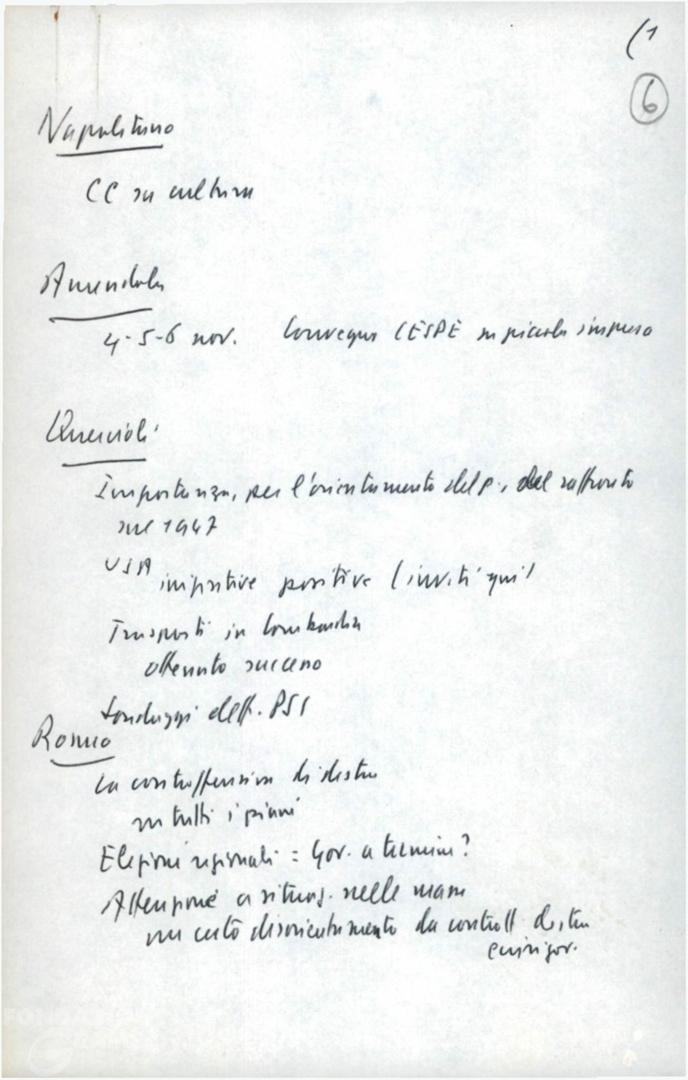 (1
6
Napolitano
CC su cultura
Amendola
4-5-6 nov. Convegno CESPE su piccola impresa
Quercioli
Importanza, per l'orientamento del p., del raffronto
sul 1947
USA iniziative positive (inviti qui)
Trasporti in Lombardia
ottenuto successo
Sondaggi PSI
Romeo
La controffensiva di destra
su tutti i piani
Elezioni regionali = Gov. a termine?
Attenzione a situaz. nelle masse
un certo disorientamento da controff. destra